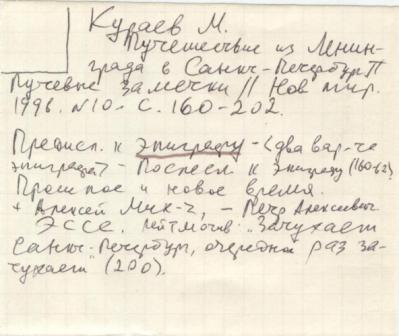 Кураев М.
Путешествие из Ленин-
града в Санкт-Петербург //
Путевые заметки // Нов мир.
1996. N10. С. 160-202.
к эпиграфу - (два вар-та
эпиграфа) - к эпиграфу (160-62)
Прошлое и новое время.
+ Алексей Мих-ч, - Петр Алексеевич
Эссе. Лейтмотив: "Зачухает
Санкт-Петербург, очередной раз за-
чухает" (200).